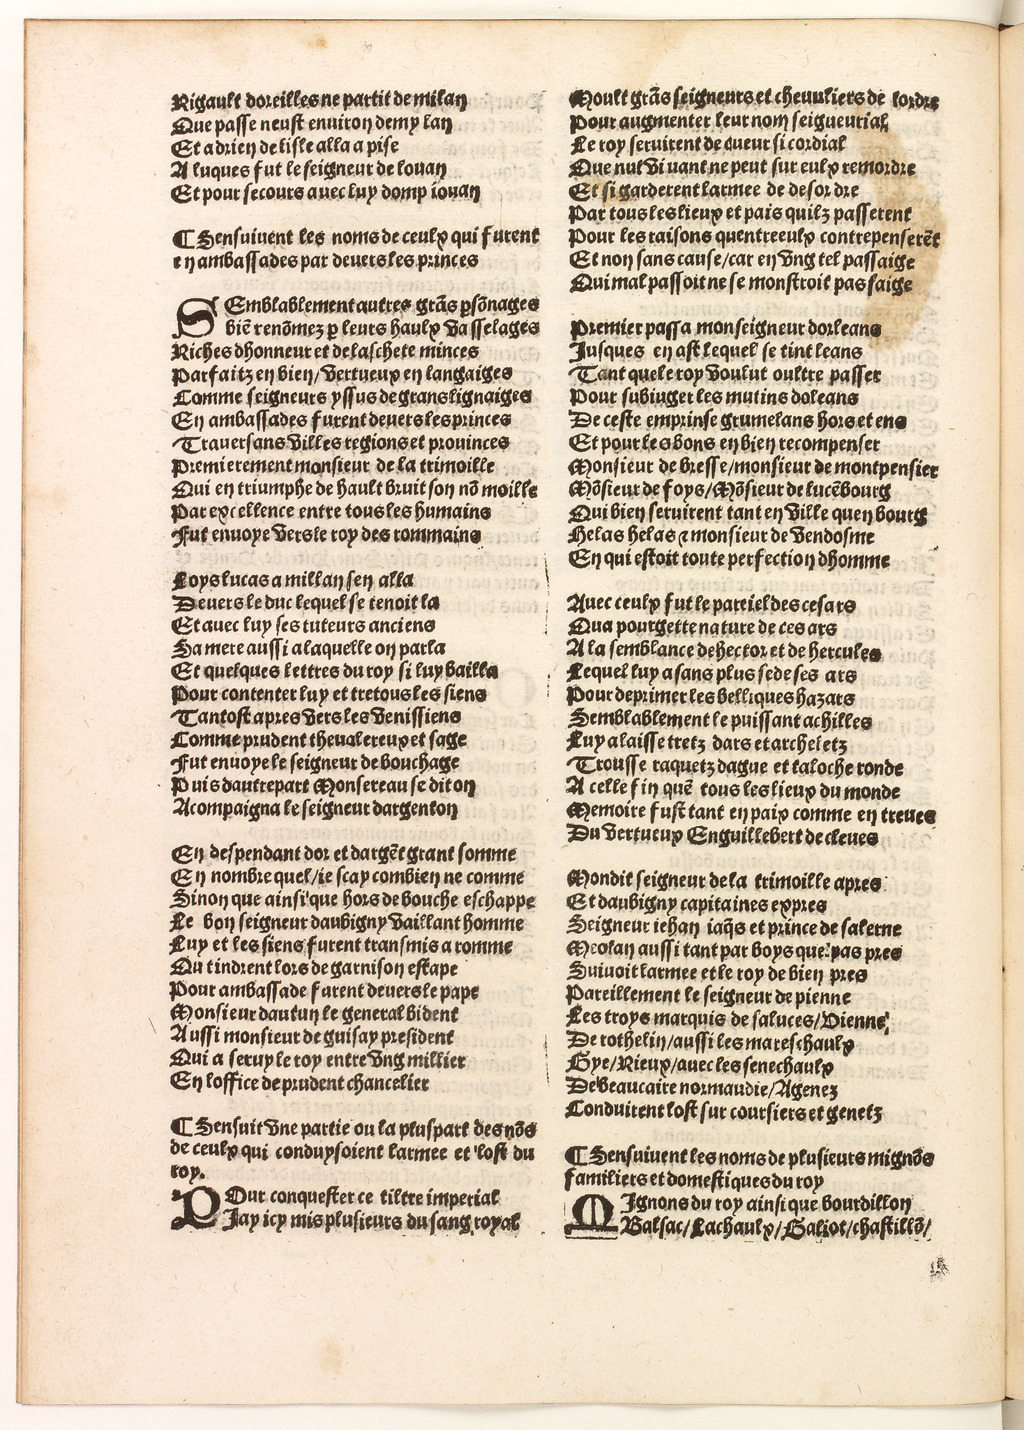 Rigault doreilles ne partit de milan
Que passe neust enuiron demy lan
Et adrien de lisle alla a pise
A luques fut le seigneur de louan
Et pour secours auec luy domp iouan
¶ Sensuiuent les noms de ceulx qui furent
en ambassades par deuers les princes
SEmblablement autres grãs p̱sõnages
biẽ renõmez p̱ leurs haulx vasselages
Riches dhonneur et de laschete minces
Parfaitz en bien/vertueux en langaiges
Comme seigneurs yssus de grans lignaiges
En ambassades furent deuers les princes
Trauersans villes regions et prouinces
Premierement monsieur de la trimoille
Qui en triumphe de hault bruit son nõ moille
Par excellence entre tous les humains
Fut enuoye vers le roy des rommains
Loys lucas a millan sen alla
Deuers le duc lequel se tenoit la
Et auec luy ses tuteurs anciens
Sa mere aussi a laquelle on parla
Et quelques lettres du roy si luy bailla
Pour contenter luy et tretous les siens
Tantost apres vers les venissiens
Comme prudent cheualereux et sage
Fut enuoye le seigneur de bouchage
Puis dautre part Monsereau se dit on
Acompaigna le seigneur dargenton
En despendant dor et dargẽt grant somme
En nombre quel/ie scay combien ne comme
Sinon que ainsi que hors de bouche eschappe
Le bon seigneur daubigny vaillant homme
Luy et les siens furent transmis a romme
Qui tindrent lors de garnison estape
Pour ambassade furent deuers le pape
Monsieur dautun le general bident
Aussi monsieur de guisay president
Qui a seruy le roy entre vng millier
En loffice de prudent chancelier
¶ Sensuit vne partie ou la pluspart des nõs
de ceulx qui conduysoient larmee et lost du
roy.
POur conquester ce tiltre imperial
Jay icy mis plusieurs du sang royal
Moult grãs seigneurs et cheualiers de lordre
Pour augmenter leur nom seigneurial
Le roy seruirent de cueur si cordial
Que nul viuant ne peut sur eulx remordre
Et si garderent larmee de desordre
Par tous les lieux et pais quilz passerent
Pour les raisons quentreeulx contrepenserẽt
Et non sans cause/car en vng tel passaige
Qui mal passoit ne se monstroit pas saige
Premier passa monseigneur dorleans
Jusques en ast lequel se tint leans
Tant que le roy voulut oultre passer
Pour subiuguer les mutins doleans
De ceste emprinse grumelans hors et ens
Et pour les bons en bien recompenser
Monsieur de bresse/monsieur de montpensier
Mõsieur de foys/Mõsieur de lucẽbourg
Qui bien seruirent tant en ville quen bourg
Helas helas ⁊ monsieur de vendosme
En qui estoit toute perfection dhomme
Auec ceulx fut le pareiel des cesars
Qua pourgette nature de ces ars
A la semblance de hector et de hercules
Lequel luy a sans plus sede ses ars
Pour deprimer les belliques hazars
Semblablement le puissant achilles
Luy a laisse tretz dars et archeletz
Trousse raquetz dague et taloche ronde
A celle fin quẽ tous les lieux du monde
Memoire fust tant en paix comme en treues
Du vertueux Enguillebert de cleues
Mondit seigneur de la trimoille apres
Et daubigny capitaines expres
Seigneur iehan iaq̃s et prince de salerne
Meolan aussi tant par boys que pas pres
Suiuoit larmee et le roy de bien pres
Pareillement le seigneur de pienne
Les troys marquis de saluces/Vienne,
De rothelin/aussi les mareschaulx
Gye/Rieux/auec les senechaulx
De beaucaire normaudie/Agenez
Conduirent lost sur coursiers et genetz
¶ Sensuiuent les noms de plusieurs mignõs
familiers et domestiques du roy
MIgnons du roy ainsi que bourdillon
Balsac/Lachaulx/Galiot/chastillõ/